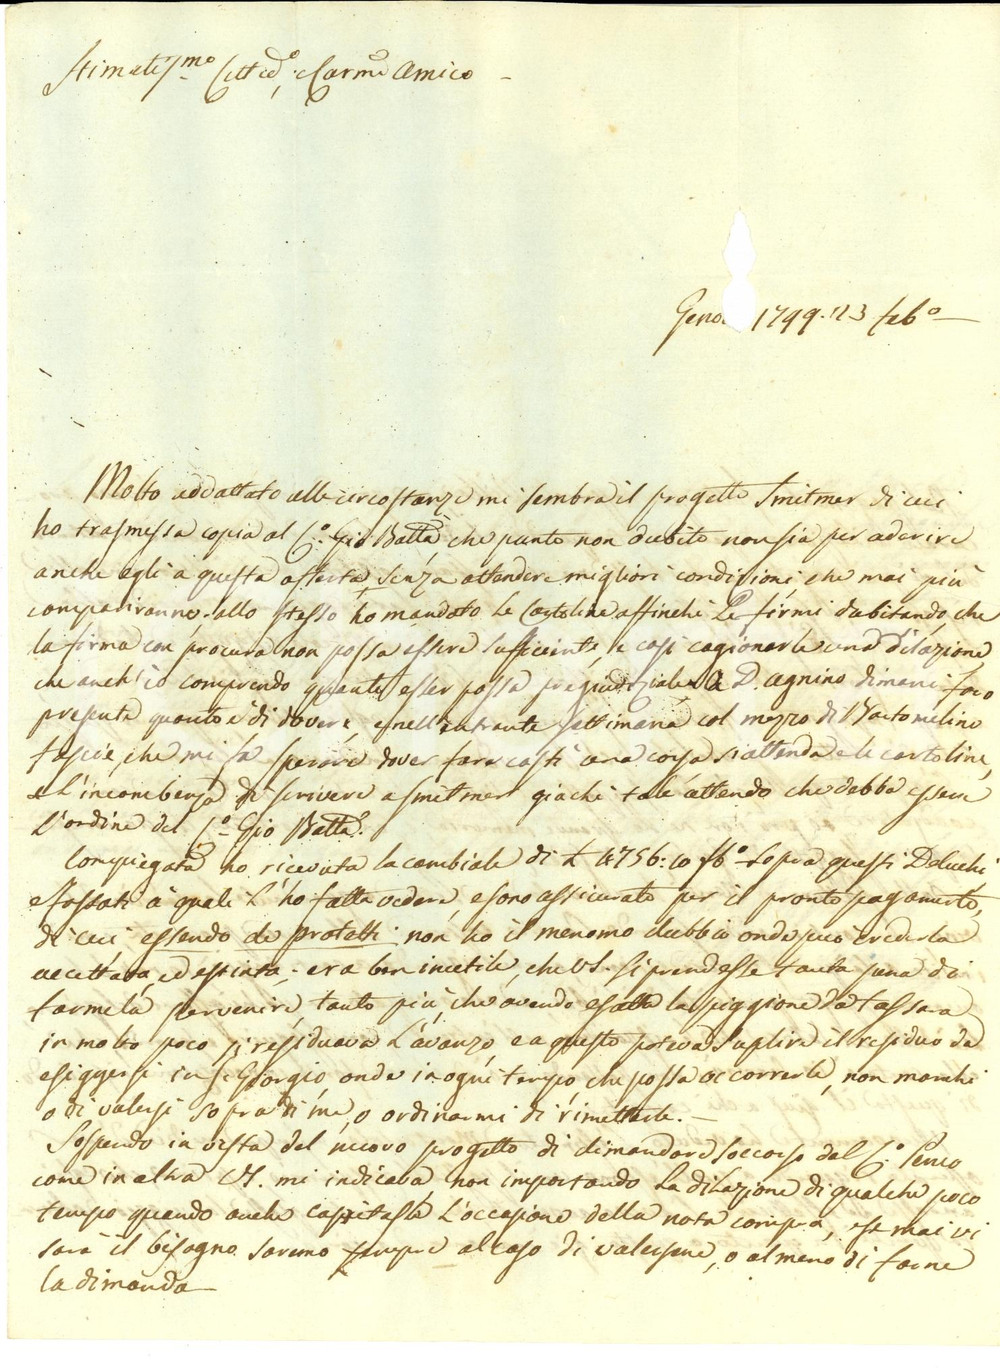 Stimatis.mo Cittad.o, e Carmo Amico
Geno 1799. 23 feb.o
Molto addattato alle circostanze mi sembra il progetto Smitmer di cui
ho trasmessa copia al C.o Gio Batta che punto non dubito non sia per aderire
anche egli a questa offerta, senza attendere migliori condizioni che mai più
compariranno. allo stesso ho mandato le Cartoline affinchè le firmi dubitando, che
la firma con procura non possa essere sufficiente, e così cagionarle una dilazione
che anch'io comprendo quanto esser possa pregiudiziale. A D. Agnino dimani
presenta quanto è di dovere, e nell'entrante settimana col mezzo di Bartomelino
fascie, che mi fa sperare dover fare costì una corsa s'attenda e le cartoline,
e l'incombenza di scrivere a Smitmer giachè tale attendo che debba essere
l'ordine del C.o Gio Batta.
Compiegata ho ricevuta la cambiale di £ 4756: 10 fb.o sopra questi Deluchi
e Fossati à quali l'ho fatta vedere, e sono assicurato per il pronto pagamento,
di cui essendo de protatti non ho il menomo dubbio onde può crederla
accettata, ed estinta. era ben inutile, che VS. si prendesse tanta pena di
farmela pervenire, tanto più, che avendo esatta la piggione da Tassara
in molto poco si residuava l'avanzo, e a questo poteva suplire il residuo da
esiggersi in S. Giorgio, onde in ogni tempo che possa occorrerle, non manchi
o di valersi sopra di me, o ordinarmi di rimetterle.
Sospendo in vista del nuovo progetto di dimandare soccorso dal C.o Penco
come in altra VS. mi indicava non importando la dilazione di qualche poco
tempo quando anche capitasse l'occasione della nota compra, e se mai vi
sarà il bisogno saremo sempre al caso di valersene, o almeno di farne
la dimanda